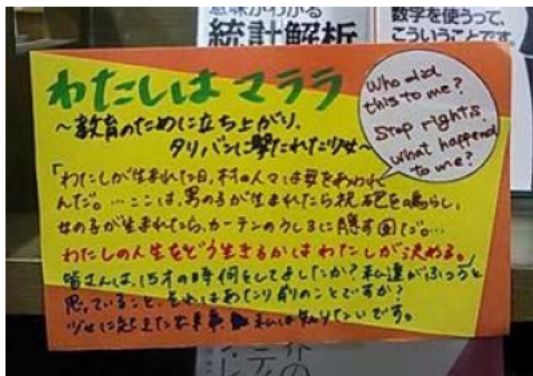 意味がわかる
統計解析
数字を使うって、
こういうことです。
わたしは マララ
〜教育のために立ち上がり、
タリバンに撃たれた少女〜
Who did
this to me?
Stop rights.
What happened
to me?
「わたしが生まれた日、村の人々は母をあわれ
んだ。…ここは、男の子が生まれたら祝砲を鳴らし、
女の子が生まれたら、カーテンのうしろに隠す国だ。…
わたしの人生をどう生きるかは わたしが決める。」
皆さんは、15才の時何をしてましたか?私達がふつうと
思っていること、それはあたり前のことですか?
少女に起きた出来事 私は知りたいです。